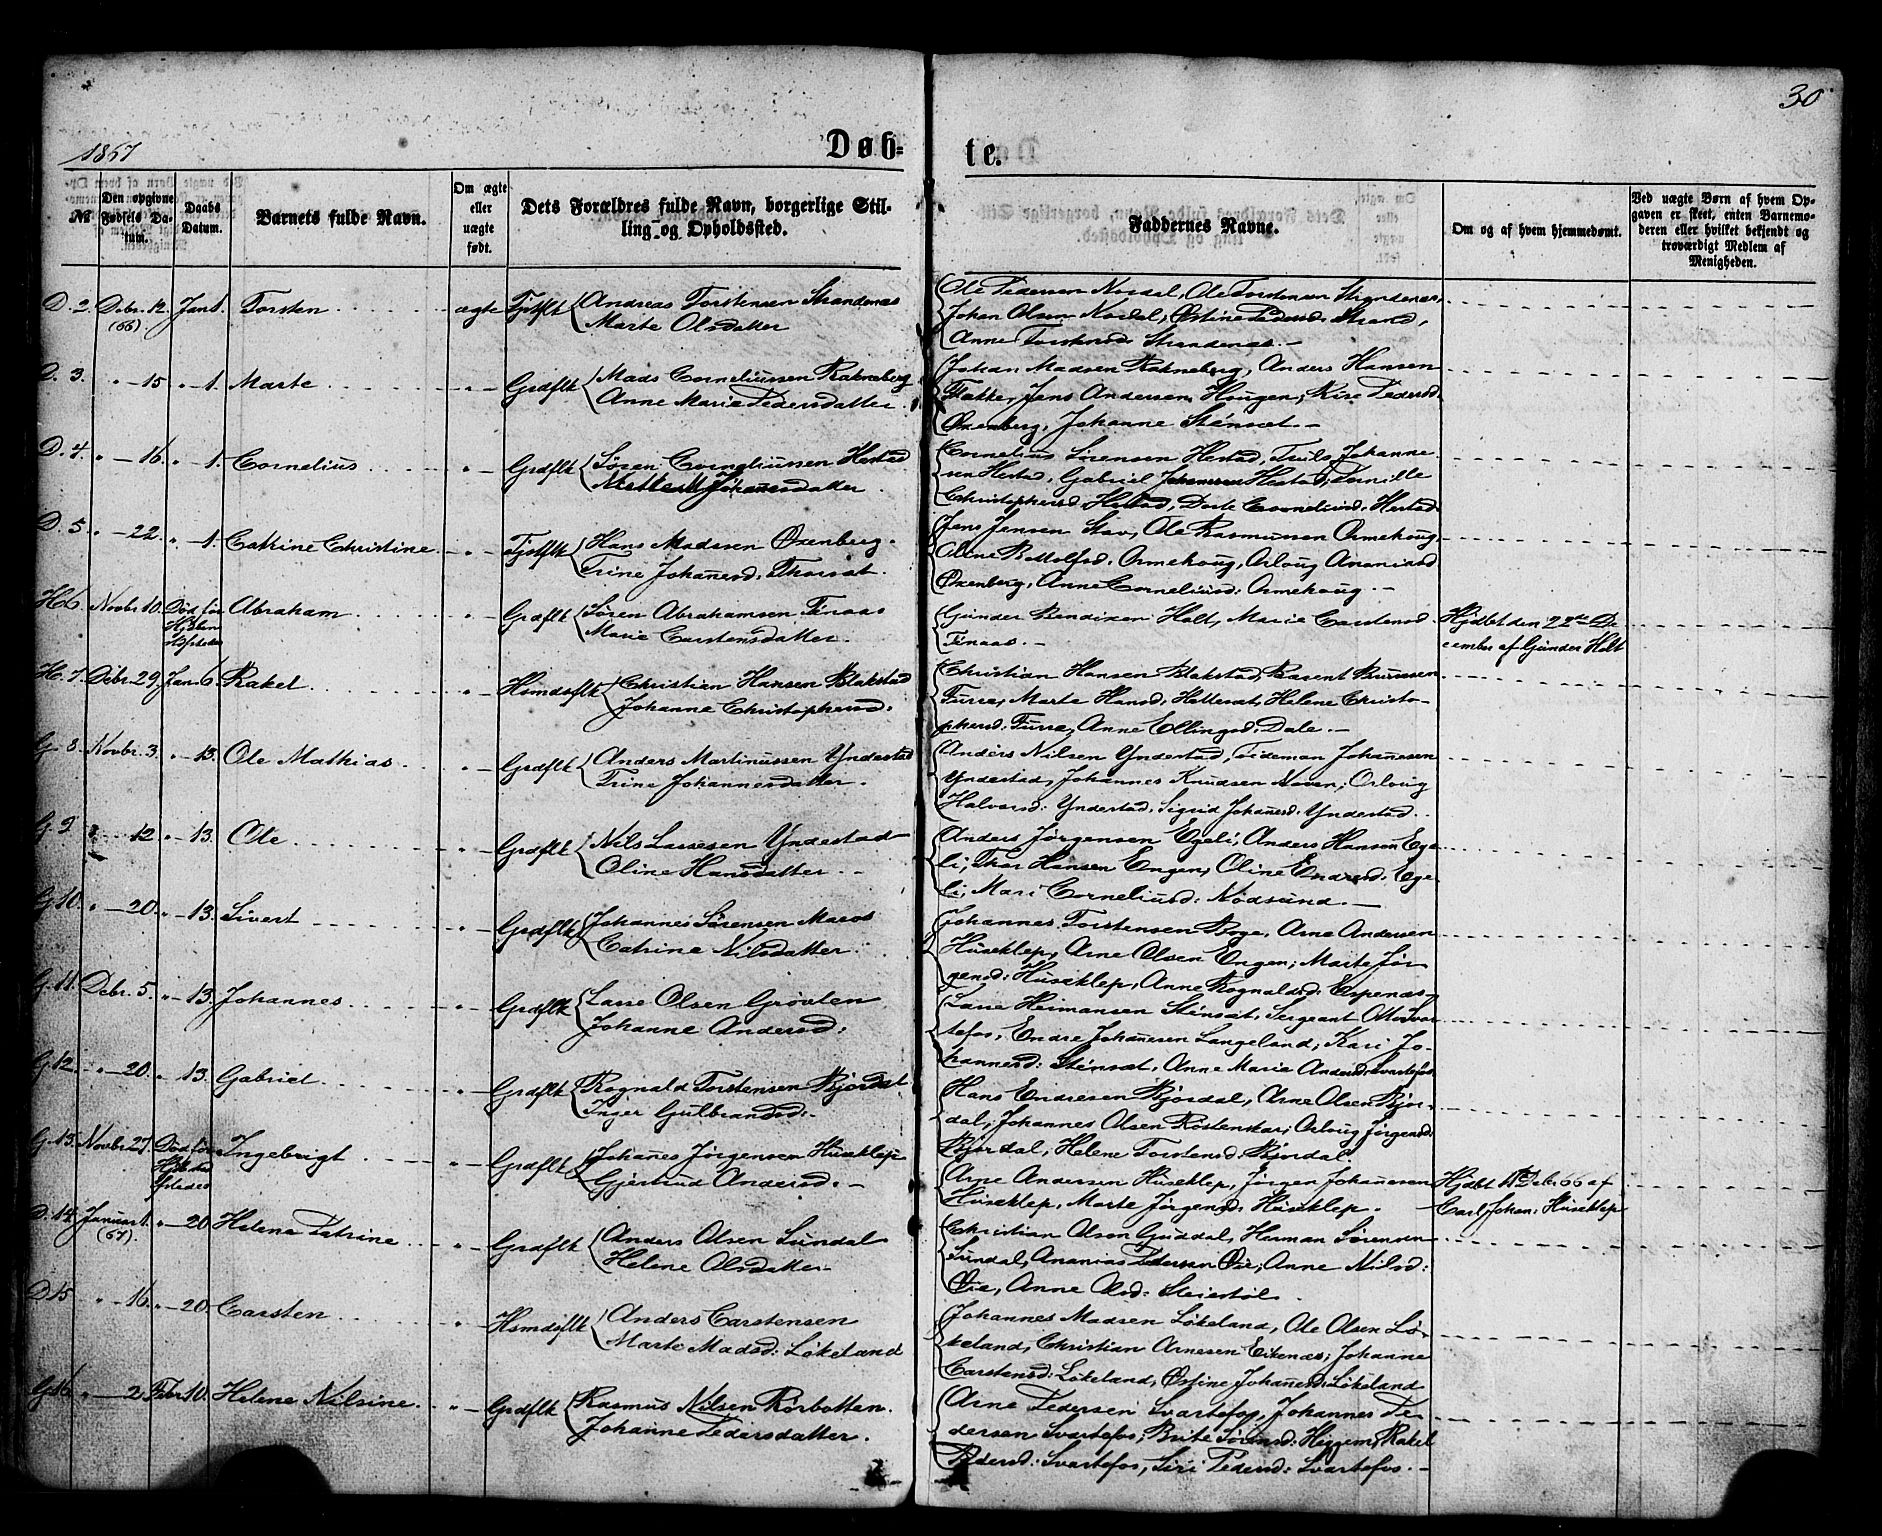 30
1867
Døb-
te.
№
Den opgivne Fødsels Datum.
Daabs Datum.
Barnets fulde Navn.
Om ægte eller uægte født.
Dets Forældres fulde Navn, borgerlige Stilling og Opholdssted.
Faddernes Navne.
Om og af hvem hjemmedøbt.
Ved uægte Børn af hvem Opgaven er skeet, enten Barnemoderen eller hvilket bekjendt og troværdigt Medlem af Menigheden.
D. 2. Debr. 12. (66) Jan 1. Torsten ægte Tjstflk Andreas Torstensen Strandenæs
Marte Olsdatter
Ole Pedersen Nordal, Ole Torstensen Strandenæs,
Johan Olsen Nordal, Østine Pedersd. Strand,
Anne Torstensd. Strandenæs.
D. 3. " 15 " 1. Marte " Grdflk Mads Corneliussen Rakneberg
Anne Marie Pedersdatter.
Johan Madsen Rakneberg, Anders Hansen
Flekke, Jens Andersen Hougen, Pedersd.
Oxenberg, Johanne Stensæt.
D. 4. " 16 " 1. Cornelius " Grdflk Søren Corneliussen Hestad
Johannesdatter.
Cornelius Sørensen Hestad, Truls Johanne
sen Hestad, Gabriel Johannessen Hestad, Pernille
Christophersd. Hestad, Dorte Corneliusd. Hestad
D. 5 " 22. " 1. Catrine Christine " Tjstflk Hans Madsen Oxenberg.
Trine Johanesd. Thorsæt.
Jens Jensen Stav, Ole Rasmussen Ormehoug
Oline Bottolfsd. Ormehoug, Orloug Ananiasd
Oxenberg, Anne Corneliusd. Ormehoug.
H 6. Novbr 10. Død før Abraham " Grdflk Søren Abrahamsen Tenaas
Marie Carstensdatter.
Gunder Bendixen Holt, Marie Carstensd
Tenaas.
Hjdbt den 22de De
cember af Gunder Holt
H. 7. Debr. 29. Jan 6. Rakel " Hsmdsflk Christian Hansen Blakstad
Johanne Christophersd.
Christian Hansen Blakstad, Barent
Furre, Marte Hansd. Hattesæt, Helene Christo-
phersd. Furre, Anne Ellingsd. Dale.
G 8. Novbr. 3. " 13. Ole Mathias " Grdflk Anders Martinussen Yndestad
Trine Johannesdatter.
Anders Nilsen Yndestad, Tideman Johanessen
Yndestad, Johannes Knudsen Noven, Orloug
Halvorsd: Yndestad, Sigrid Johanesd: Yndestad.
G. 9 " 12 " 13. Ole " Grdflk Nils Larsen Yndestad
Oline Hansdatter.
Anders Jørgensen Egeli, Anders Hansen Ege
li, Thor Hansen Engen, Oline Endresd. Ege
li, Mari Corneliusd. Nødsund.
G. 10. " 20. " 13. Sivert " Grdflk Johannes Sørensen Maros
Catrine Nilsdatter.
Johannes Torstensen Borge, Arne Andersen
Huseklep, Arne Olsen Engen, Marte Jør
gensd: Huseklep, Anne Rognaldsd: Espenæs
G. 11. Debr. 5. " 13. Johannes " Grdflk Lasse Olsen Grøvlen
Johanne Andersd:
Lasse Heimansen Stensæt, Sergeant Otto Svar
tefos, Endre Johanesen Langeland, Kari Jo-
hannesd: Stensæt, Anne Marie Andersd. Svartefos
G. 12. " 20. " 13. Gabriel " Grdflk Rognald Torstensen Bjordal
Inger Gulbransd:
Hans Endresen Bjørdal, Arne Olsen Bjør-
dal, Johannes Olsen Røstenskar, Orloug Jørgensd.
Bjørdal, Helene Torstensd. Bjørdal.
G. 13. Novbr 27. Død før Ingebrigt " Grdflk Johanes Jørgensen Huseklep
Gjertrud Andersd.
Arne Andersen Huseklep, Jørgen Johannesen
Huseklep, Marte Jørgensd. Huseklep.
Hjdbt Debr 66 af
Carl Johan: Huseklep
D. 14. Januar 1. (67). " 20 Helene Patrine " Grdflk Anders Olsen Sundal
Helene Olsdatter
Christian Olsen Guddal, Herman Sørensen
Sundal, Ananias Pedersen Øie, Anne Nilsd:
Øie, Anne Olsd. Steiestøl.
D 15 " 16. " 20. Carsten " Hsmdsflk Anders Carstensen
Marte Madsd: Løkeland
Johannes Madsen Løkeland, Ole Olsen Lø-
keland, Christian Arnesen Eikenæs, Johanne
Carstensd: Løkeland, Østine Johanesd: Løkeland
G 16 " 2. Febr 10. Helene Nilsine " Grdflk Rasmus Nilsen Rørbotten.
Johanne Pedersdatter.
Arne Pedersen Svartefos, Johannes Pe
dersen Svartefos, Brite Sørensd: Heggem, Rakel
Pedersd: Svartefos, Siri Pedersd: Svartefos.